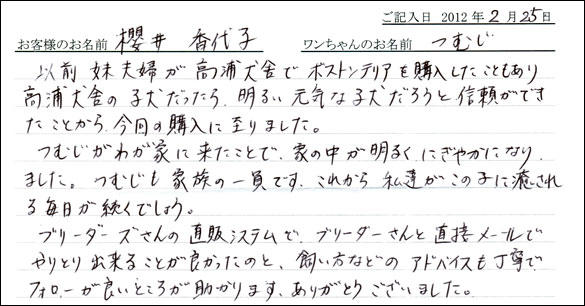 ご記入日 2012年2月25日
お客様のお名前 櫻井 香代子 ワンちゃんのお名前 つむじ
以前 妹夫婦が 高浦犬舎で ボストンテリアを購入したこともあり
高浦犬舎の 子犬だったら、明るい 元気な子犬だろうと信頼ができ
たことから、今回の購入に至りました。
つむじがわが家に来たことで、家の中が明るく、にぎやかになり
ました。つむじも 家族の一員です。これから 私達がこの子に癒され
る毎日が続くでしょう。
ブリーダーズさんの 直販システムで、ブリーダーさんと直接メールで
やりとり出来ることが良かったのと、飼い方などの アドバイスも丁寧で
フォローが良いところが助かります。ありがとうございました。